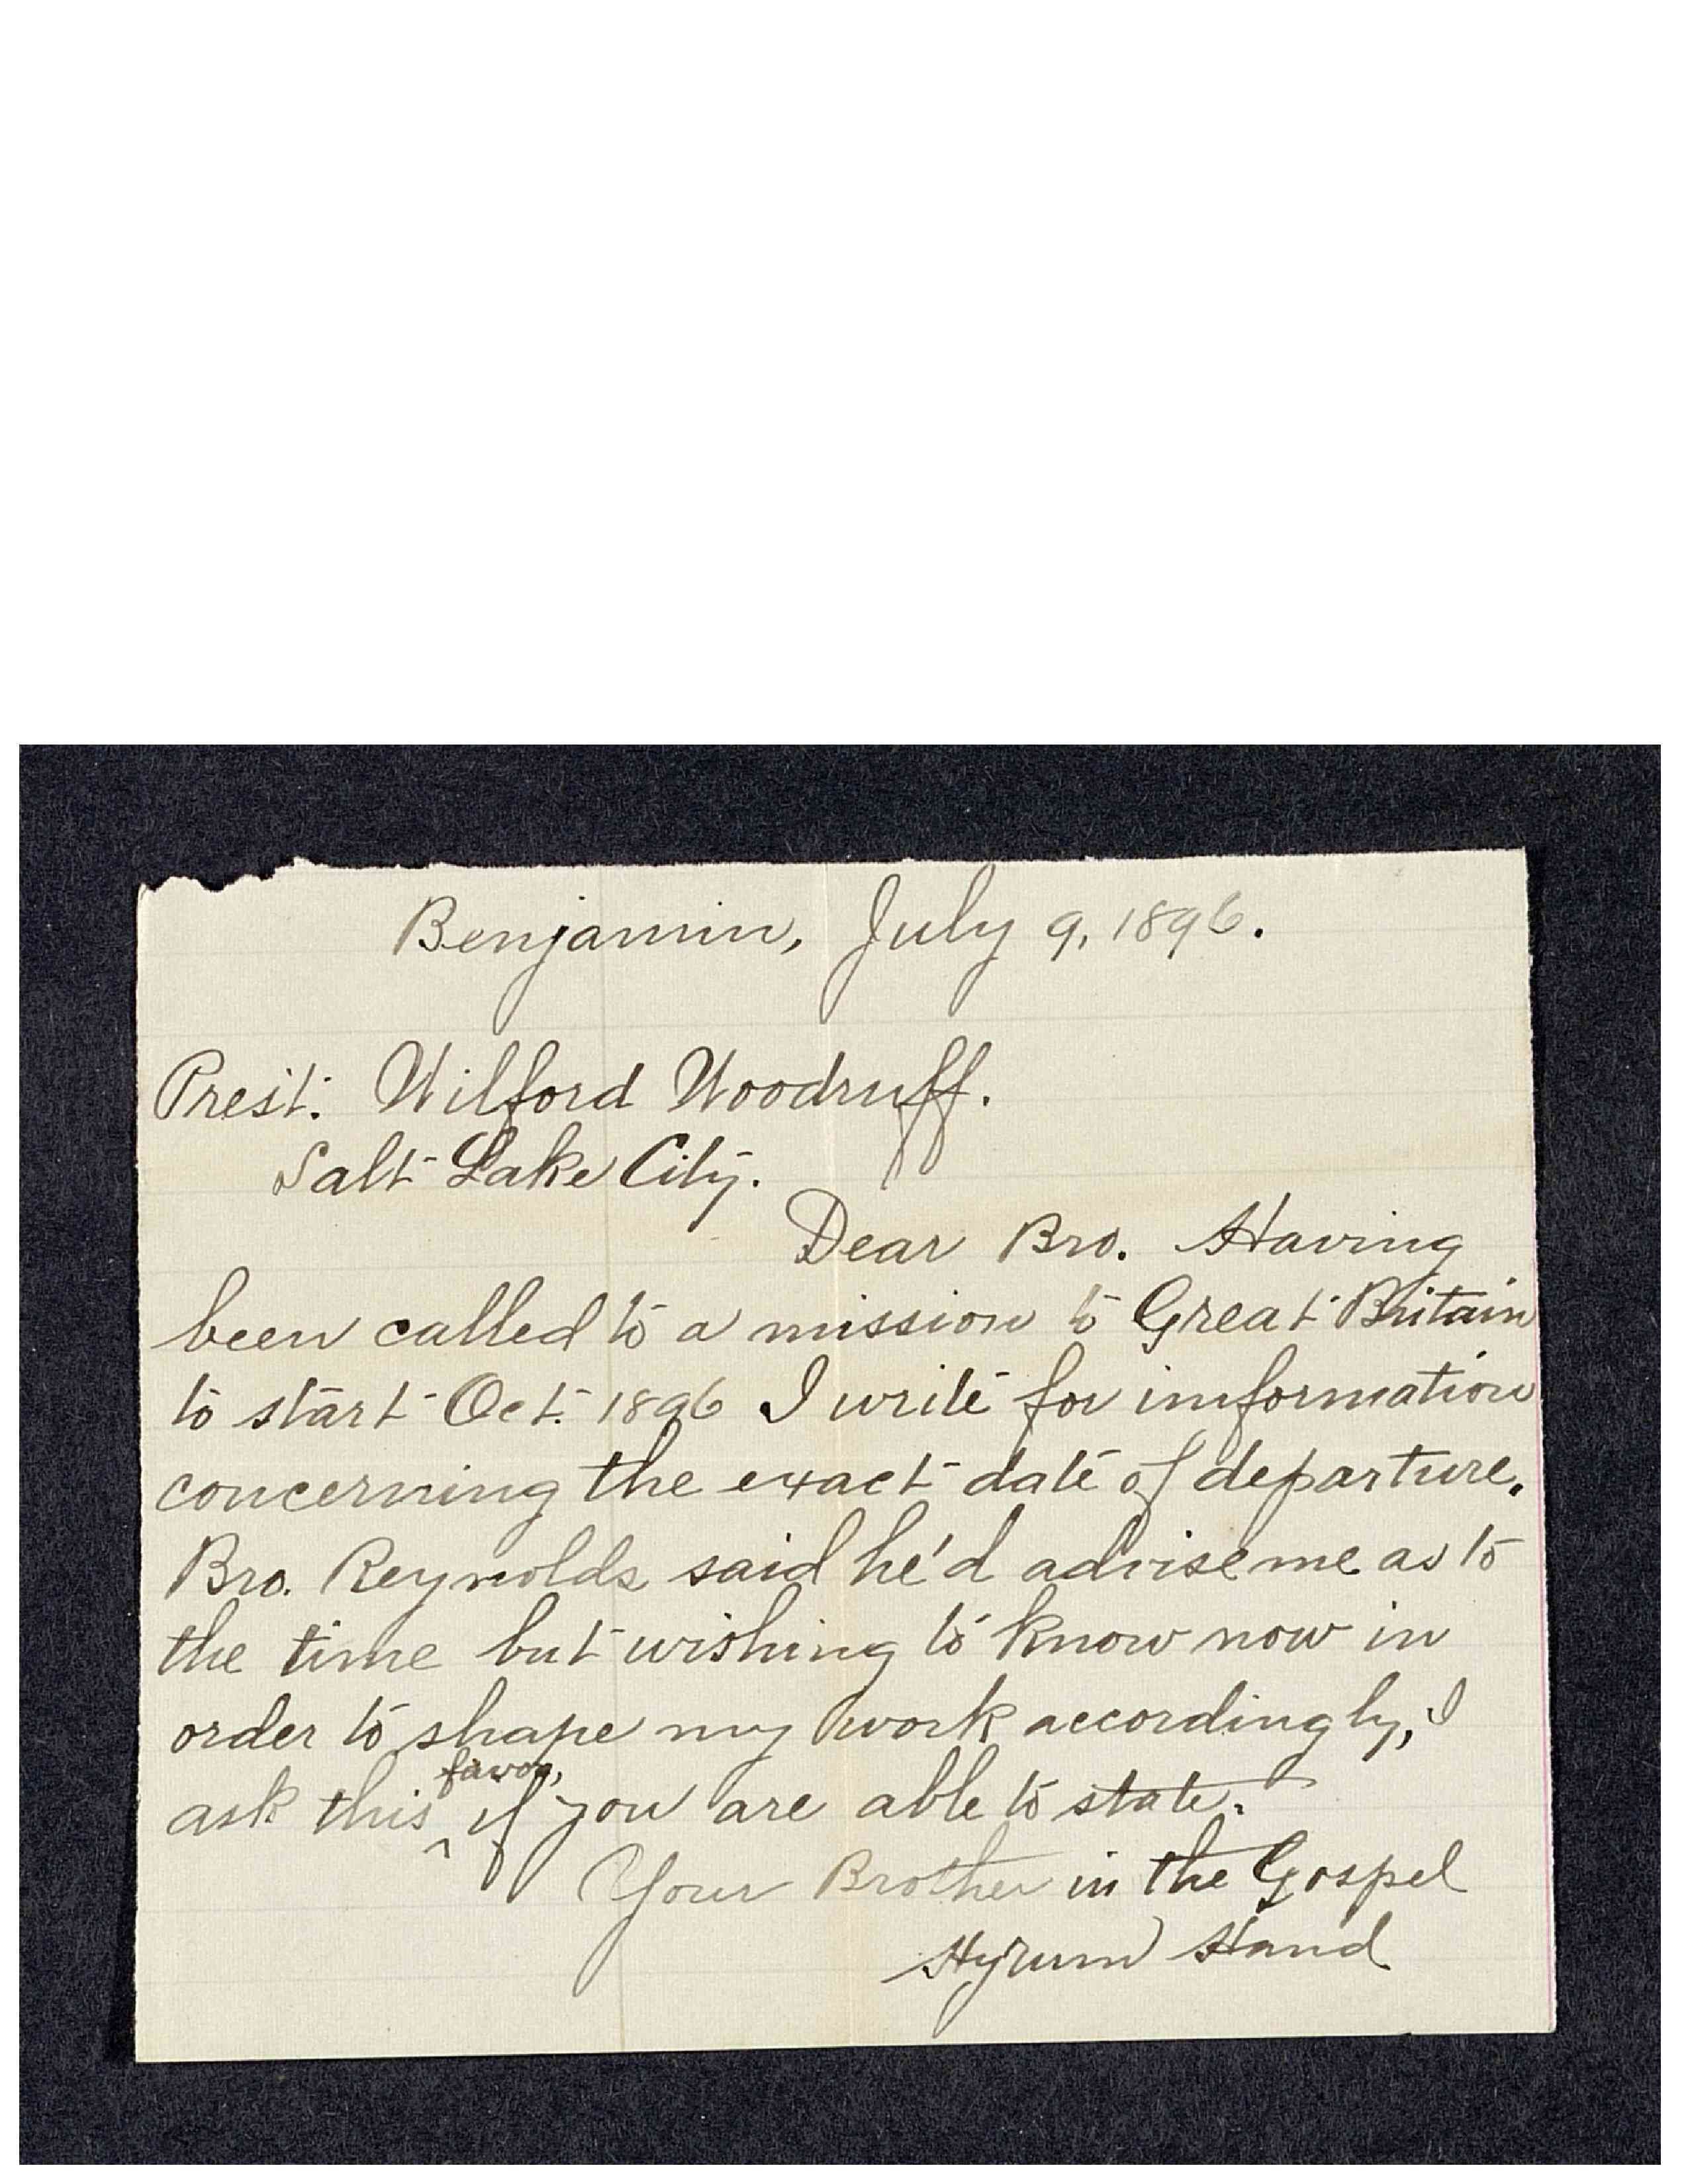 Benjamin, July 9, 1896.
Prest. Wilford Woodruff.
Salt Lake City.
Dear Bro. Having
been called to a mission to Great Britain
to start Oct. 1896 I write for information
concerning the exact date of departure.
Bro. Reynolds said he'd advise me as to
the time but wishing to know now in
order to shape my work accordingly, I
favor,
ask this ^ if you are able to state.
Your Brother in the Gospel
Hyrum Hand